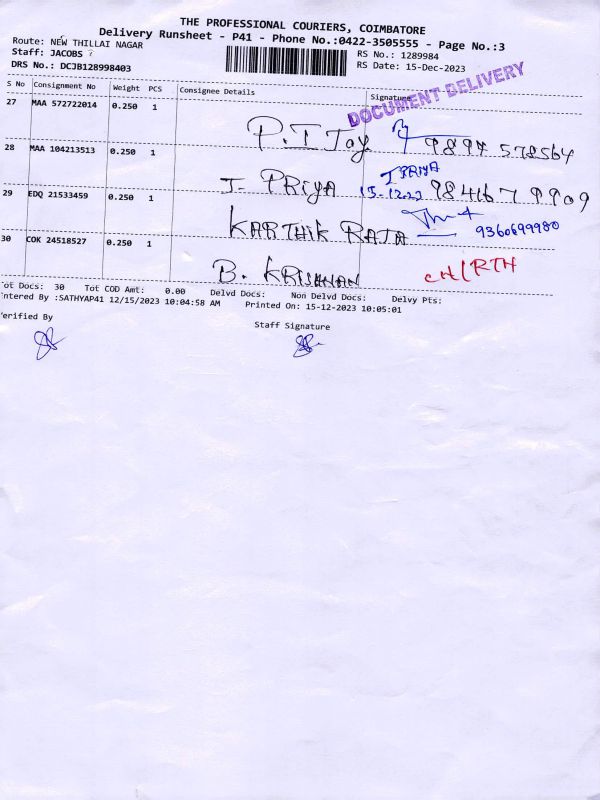 THE PROFESSIONAL COURIERS, COIMBATORE
Delivery Runsheet - P41 - Phone No.:0422-3505555 - Page No.:3
Route: NEW THILLAI NAGAR
RS No.: 1289984
Staff: JACOBS
RS Date: 15-Dec-2023
DRS No.: DCJB128998403
DOCUMENT DELIVERY
S No Consignment No Weight PCS Consignee Details Signature
27 MAA 572722014 0.250 1
28 MAA 104213513 0.250 1
J. PRIYA
J PRIYA
29 EDQ 21533459 0.250 1
KARTHIK RAJA 9360699980
30 COK 24518527 0.250 1
B. KRISHNAN
Tot Docs: 30 Tot COD Amt: 0.00 Delvd Docs: Non Delvd Docs: Delvy Pts:
Entered By :SATHYAP41 12/15/2023 10:04:58 AM Printed On: 15-12-2023 10:05:01
Verified By
Staff Signature